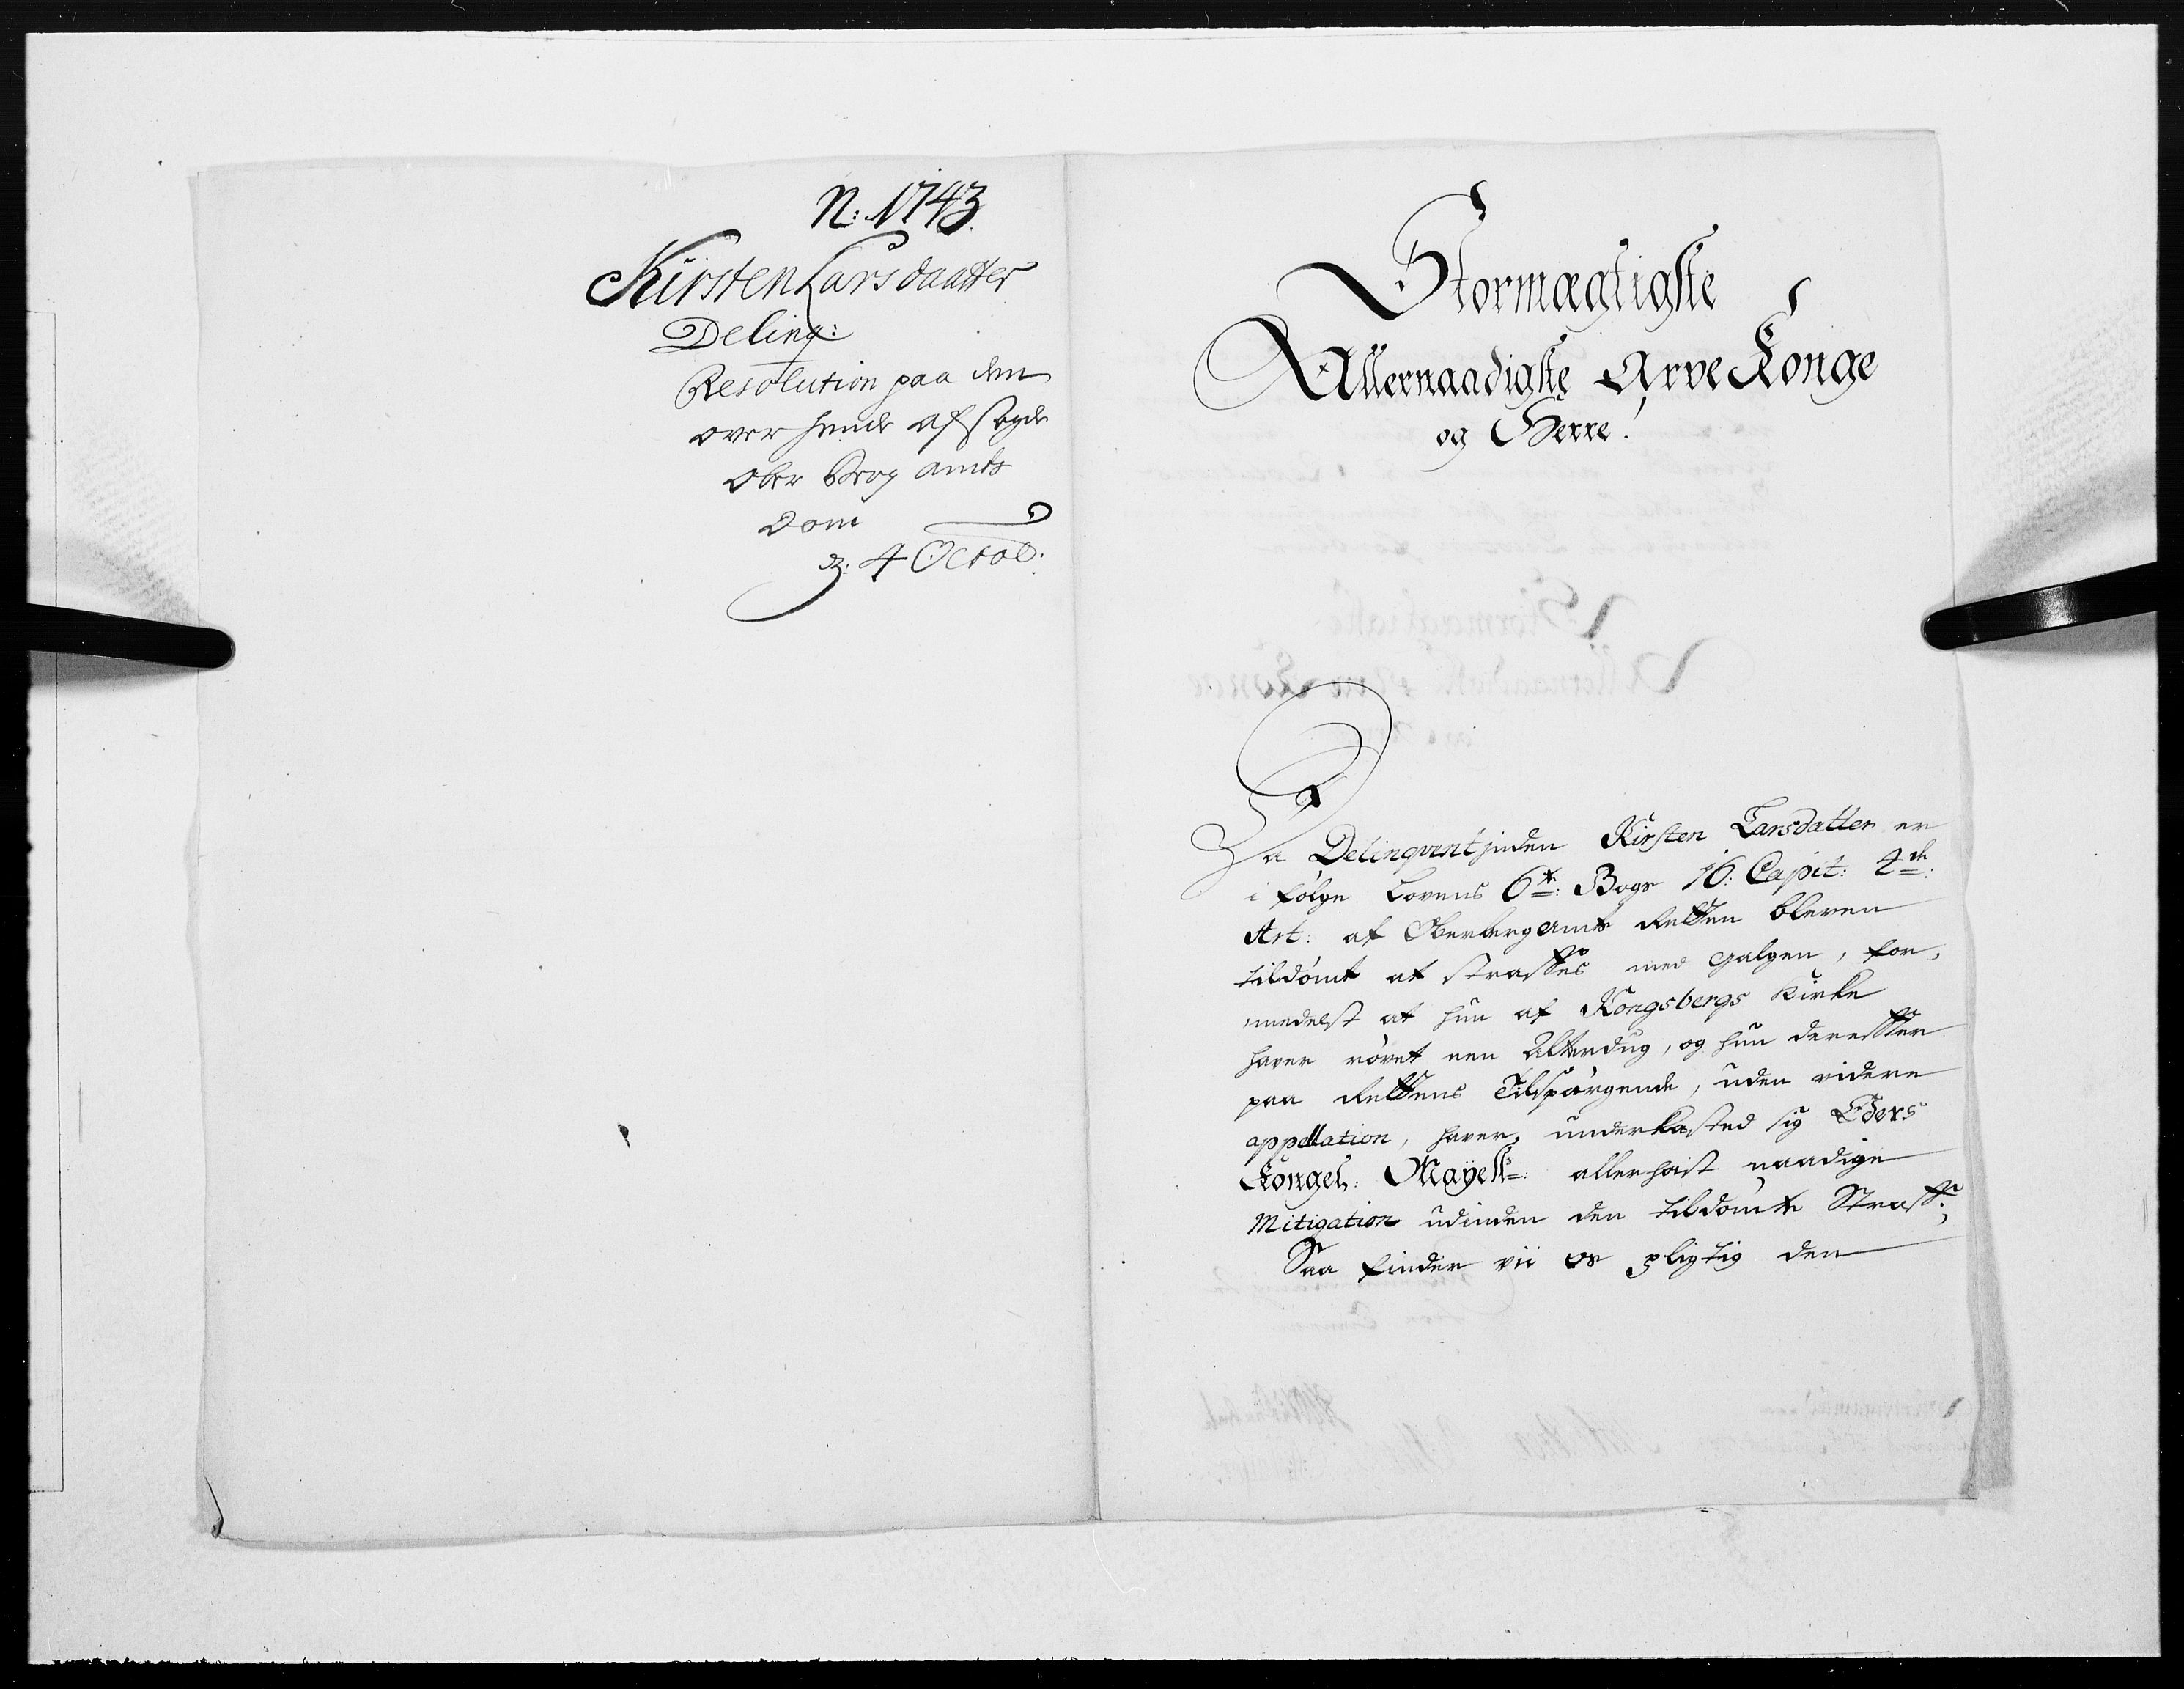 N: 1743.
Kirsten Larsdaatter
Delinq:
Resolution paa den
over hende afsagde
Ober Berg amts
Dom
D: 4 Octob:
Stormægtigste
Allernaadigste Arve Konge
og Herre!
Da Delinqventinden Kirsten Larsdatter er
i følge Lovens 6te: Bogs 16: Capit: 4de:
Art: af Oberbergamts Retten bleven
tildømt at straffes med Galgen, for,
medelst at hun af Kongsbergs Kirke
haver røvet een Alterdug, og hun derefter
paa Rettens Tilspørgende, uden videre
appellation, haver underkasted sig Eders
Kongel: Mayests: allerhøist naadige
Mitigation udinden den tildømte Straff;
Saa finder vii os pligtig den